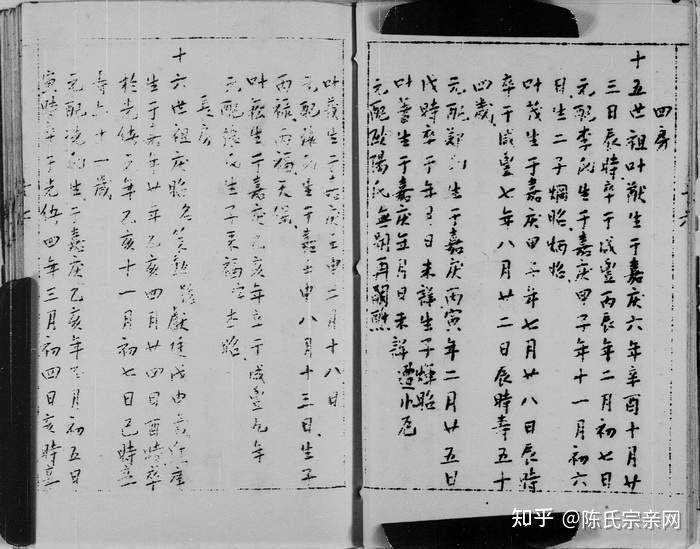 四房
十五世祖叶猷生于嘉庆六年辛酉十月廿
三日辰時卒于咸豊丙辰年二月初七日
元配李氏生于嘉庆甲子年十一月初六
日生二子炳昭
叶茂生于嘉庆甲子年七月廿八日辰時
卒于咸豊七年八月廿二日辰時寿五十
四歲
元配鄭氏生于嘉庆丙寅年二月廿五日
戌時卒于年月日未詳生子輝昭
叶蕃生于嘉庆年月日未詳遭小厄
元配歐陽氏無嗣再醮
叶茂生于嘉庆壬申二月十八日
元配張氏生于嘉壬申八月十三日生子
丙禄丙福
叶生于嘉庆乙亥年卒于咸豊九年
元配張氏生子丙福
長房
十六世祖庆昭名
生于嘉庆廿年乙亥四月廿四日酉時卒
於光绪元年乙亥十一月初七日巳時
寿六十一歲
元配冼氏生于嘉庆乙亥年月初五日
寅時卒于光绪四年三月初四日亥時
知乎 @陈氏宗亲网